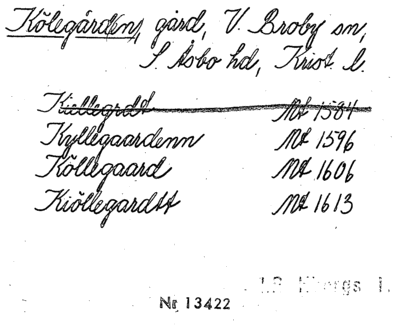 Kölegården, gård, V. Broby sn,
S. Åsbo hd, Krist. l.
Kiellegrdt Mt 1584
Kyllegaardenn Mt 1596
Köllegaard Mt 1606
Kiöllegardtt Mt 1613
Nr 13422